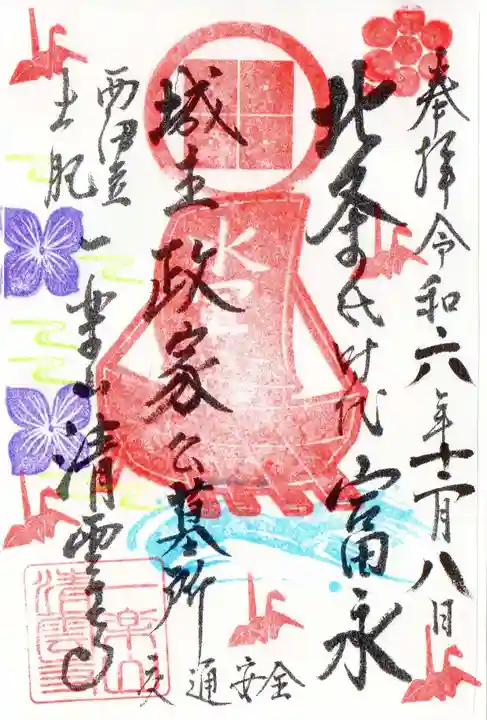 奉拝令和六年十二月八日
北条氏時代 富永
城主政家公墓所
西伊豆
土肥 一楽山清雲寺
交通安全
水軍
一楽山
清雲寺